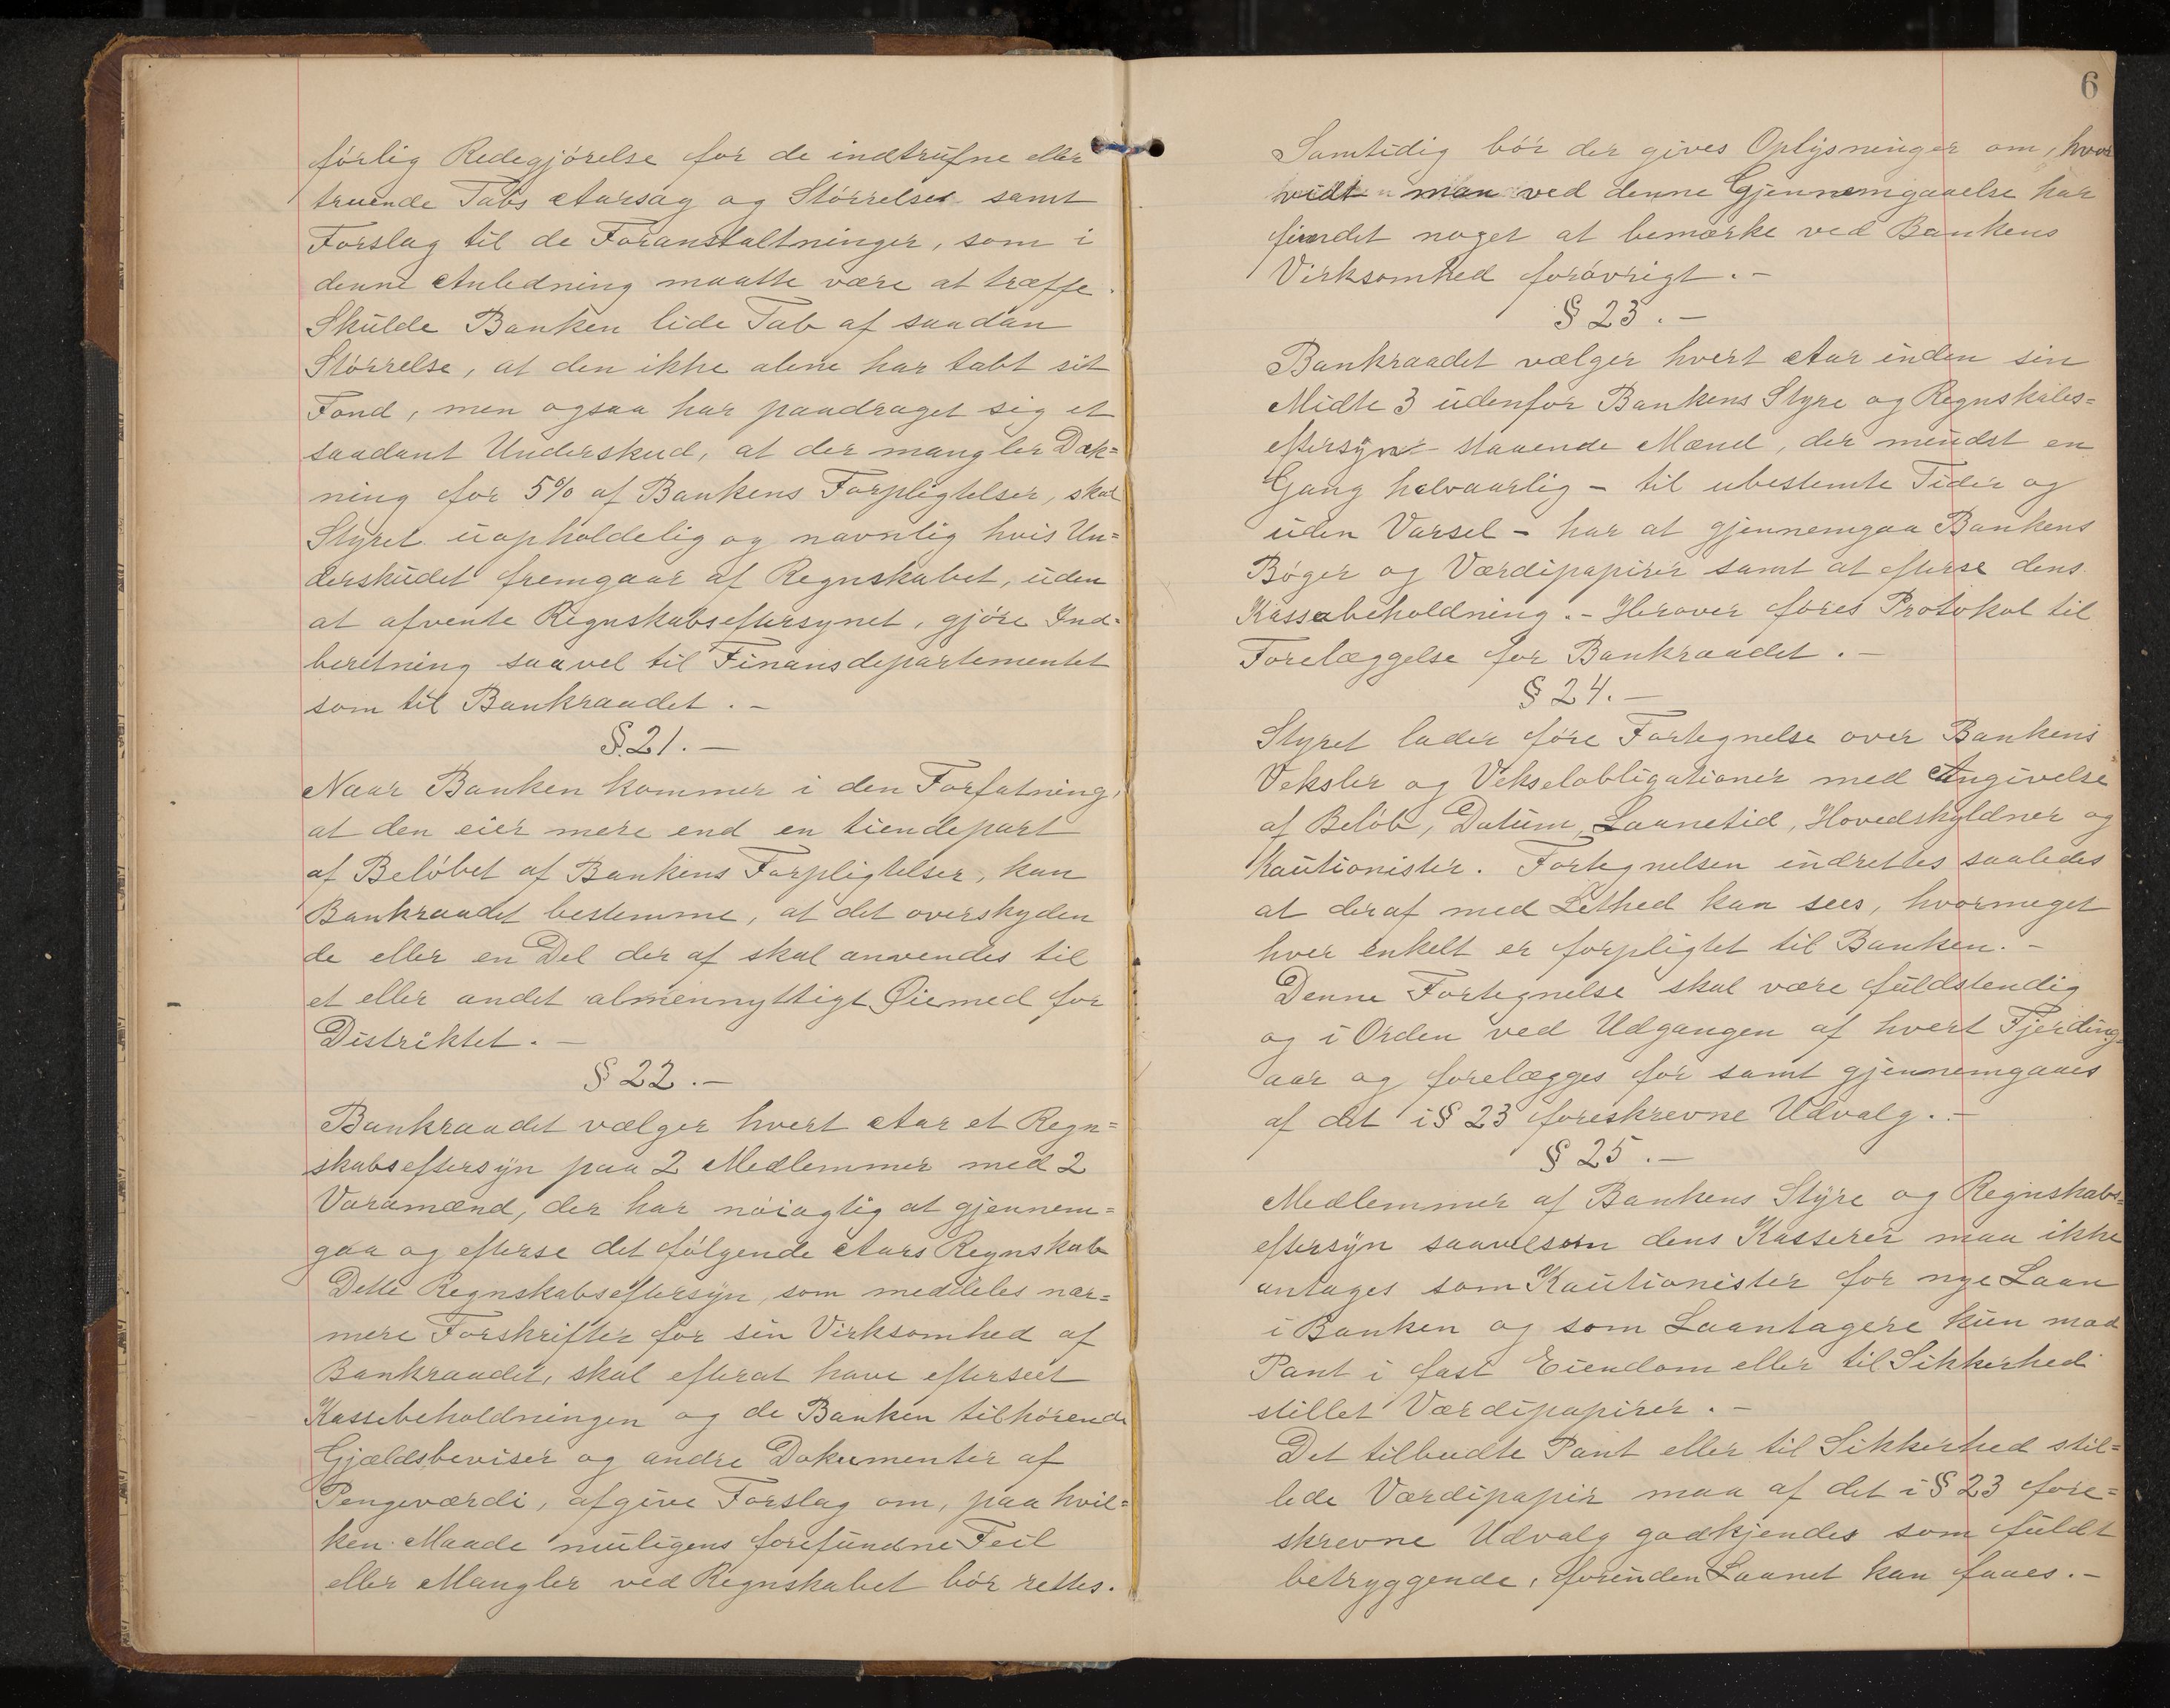 førlig Redegjørelse for de indtrufne eller
truende Tabs Aarsag og Størrelser samt
Forslag til de Foranstaltninger, som i
denne Anledning maatte være at træffe.
Skulde Banken lide Tab af saadan
Størrelse, at den ikke alene har tabt sit
Fond, men ogsaa har paadraget sig et
saadant Underskud, at der mangler Dæk=
ning for 5% af Bankens Forpligtelser, skal
Styret uopholdelig og navnlig hvis Un=
derskudet fremgaar af Regnskabet, uden
at afvente Regnskabseftersynet, gjøre Ind=
beretning saavel til Finansdepartementet
som til Bankraadet. -
§ 21. -
Naar Banken kommer i den Forfatning,
at den eier mere end en tiendepart
af Beløbet af Bankens Forpligtelser, kan
Bankraadet bestemme, at det overskyden
de eller en Del der af skal anvendes til
et eller andet almennyttigt Øiemed for
Distriktet. -
§ 22. -
Bankraadet vælger hvert Aar et Regn=
skabseftersyn paa 2 Medlemmer med 2
Varamænd, der har nøiagtig at gjennem=
gaa og efterse det følgende Aars Regnskab
Dette Regnskabseftersyn, som meddeles nær=
mere Forskrifter for sin Virksomhed af
Bankraadet, skal efterat have efterseet
Kassebeholdningen og de Banken tilhørende
Gjældsbeviser og andre Dokumenter af
Pengeværdi, afgive Forslag om, paa hvil=
ken Maade muligens forefundne Feil
eller Mangler ved Regnskabet bør rettes.
6
Samtidig bør der gives Oplysninger om, hvor
vidt man ved denne Gjennemgaaelse har
fundet noget at bemærke ved Bankens
Virksomhed forøvrigt. -
§ 23. -
Bankraadet vælger hvert Aar inden sin
Midte 3 udenfor Bankens Styre og Regnskabs=
eftersynet staaende Mænd, der mindst en
Gang halvaarlig - til ubestemte Tider og
uden Varsel - har at gjennemgaa Bankens
Bøger og Værdipapirer samt at efterse dens
Kassabeholdning. - Herover føres Protokol til
Forelæggelse for Bankraadet. -
§ 24. -
Styret lader føre Fortegnelse over Bankens
Veksler og Vekselobligationer med Angivelse
af Beløb, Datum, Laanetid, Hovedskyldner og
Kautionister. Fortegnelsen indrettes saaledes
at deraf med Lethed kan sees, hvormeget
hver enkelt er forpligtet til Banken. -
Denne Fortegnelse skal være fuldstendig
og i Orden ved Udgangen af hvert Fjerding=
aar og forelægges for samt gjennemgaaes
af det i § 23 foreskrevne Udvalg. -
§ 25. -
Medlemmer af Bankens Styre og Regnskabs=
eftersyn saavelsom dens Kasserer maa ikke
antages som Kautionister for nye Laan
i Banken og som Laantagere kun mod
Pant i fast Eiendom eller til Sikkerhed
stillet Værdipapirer. -
Det tilbudte Pant eller til Sikkerhed stil=
lede Værdipapir maa af det i § 23 fore=
skrevne Udvalg godkjendes som fuldt
betryggende, forinden Laanet kan faaes. -